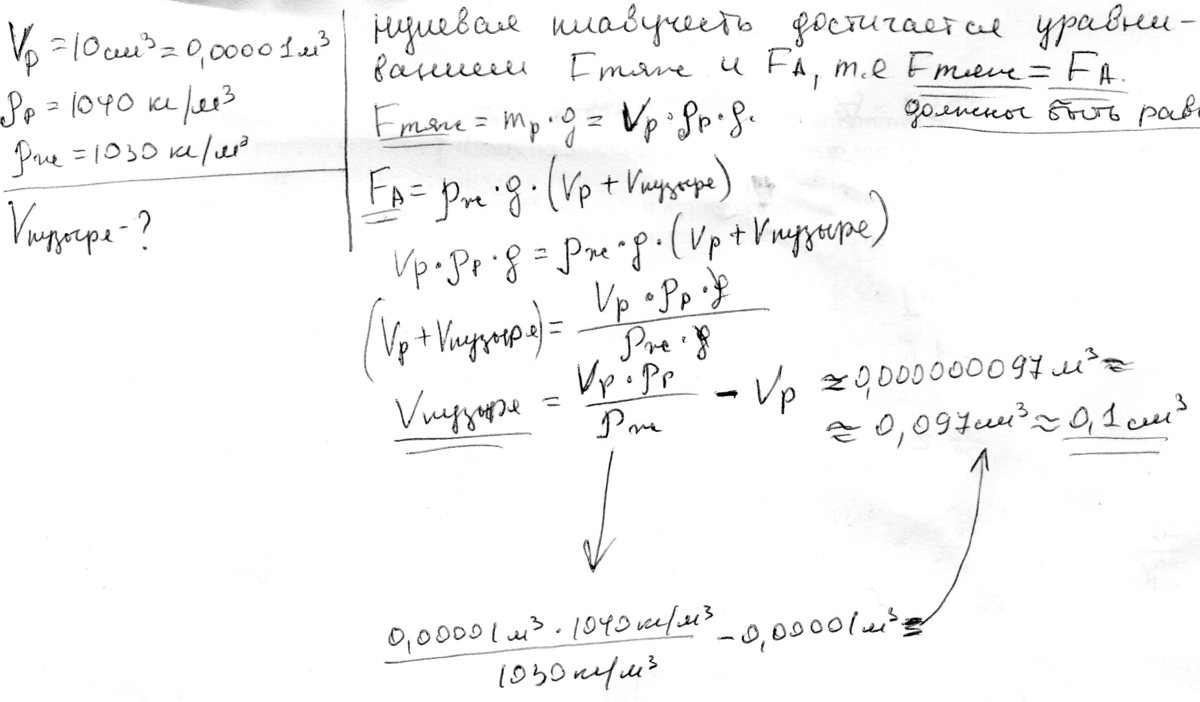 Vр = 10 см³ = 0,00001 м³
ρр = 1040 кг/м³
ρж = 1030 кг/м³
Vпузыря - ?
нулевая плавучесть достигается уравни-
ванием Fтяж и FA, т.е Fтяж = FA.
должны быть рав
Fтяж = mр · g = Vр · ρр · g.
FA = ρж · g · (Vр + Vпузыря)
Vр · ρр · g = ρж · g · (Vр + Vпузыря)
(Vр + Vпузыря) = Vр · ρр · g / ρж · g
Vпузыря = Vр · ρр / ρж - Vр ≈ 0,000000097 м³ ≈
≈ 0,097 см³ ≈ 0,1 см³
0,00001 м³ · 1040 кг/м³ / 1030 кг/м³ - 0,00001 м³ =